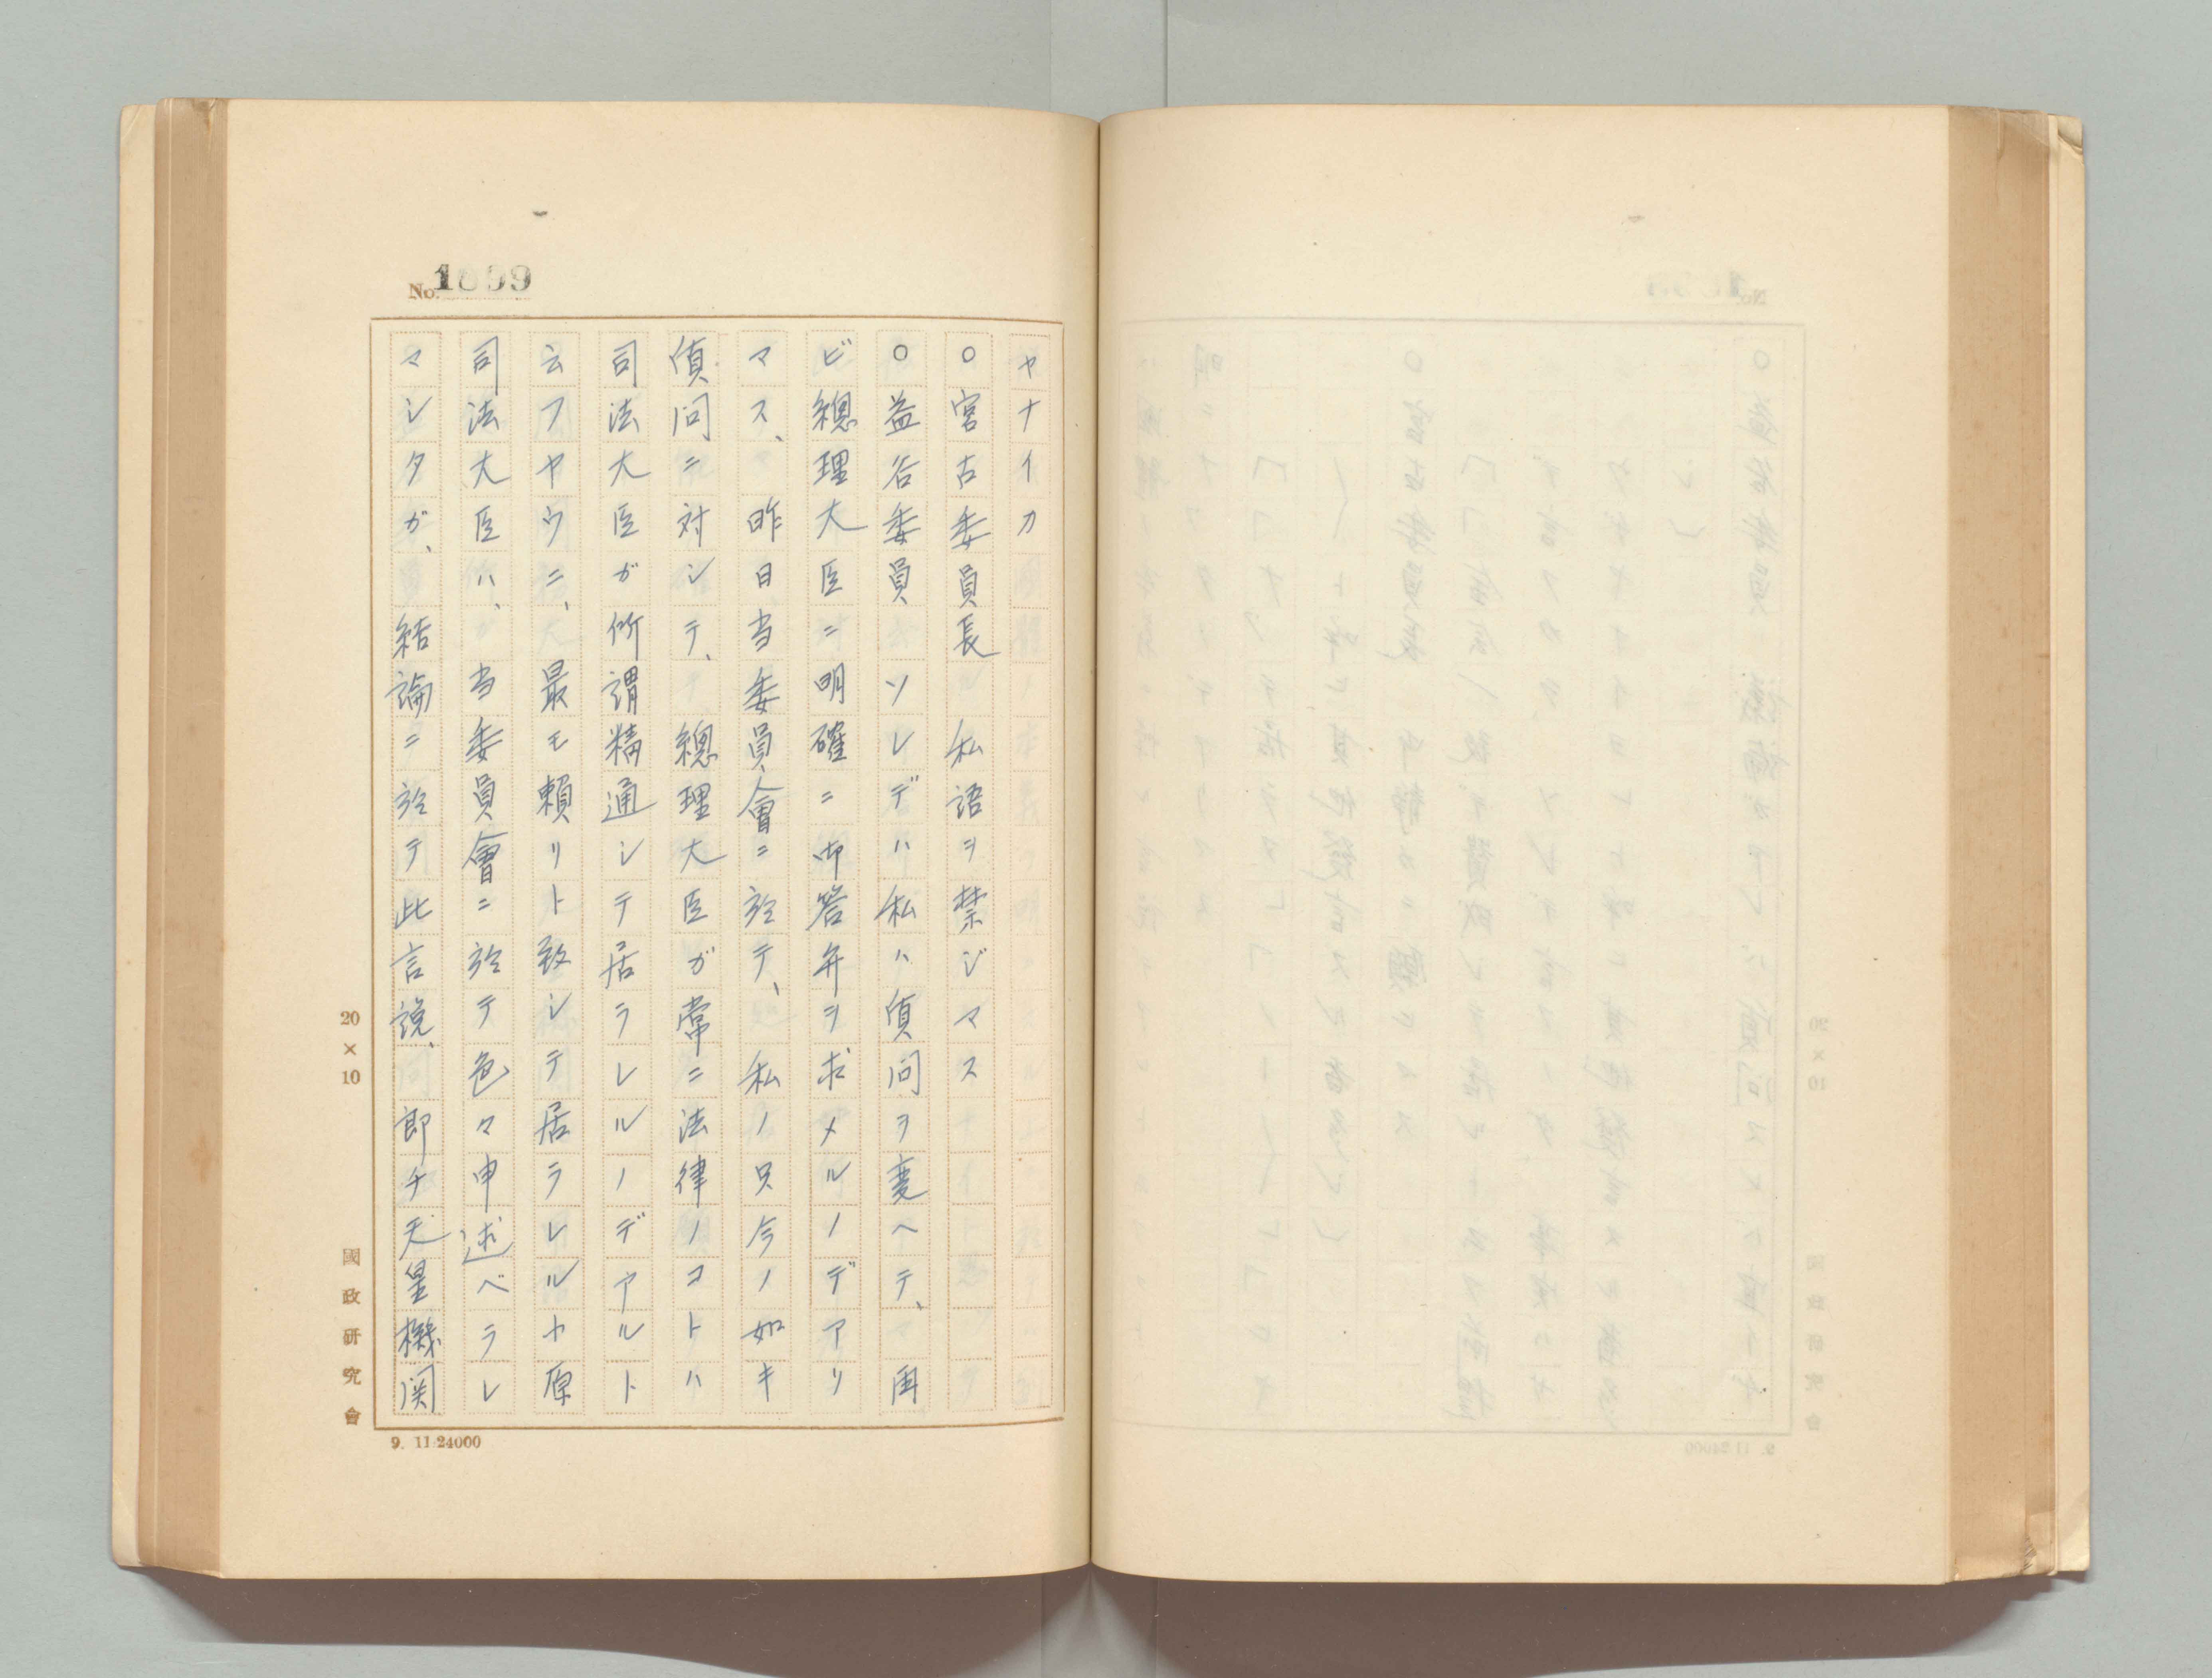 No. 1099
ヤナイカ
○宮古委員長 私語ヲ禁ジマス
○益谷委員 ソレデハ私ハ質問ヲ変ヘテ、再
ビ總理大臣ニ明確ニ御答弁ヲ求メルノデアリ
マス、昨日当委員會ニ於テ、私ノ只今ノ如キ
質問ニ対シテ、總理大臣ガ常ニ法律ノコトハ
司法大臣ガ所謂精通シテ居ラレルノデアルト
云フヤウニ、最モ頼リト致シテ居ラレル小原
司法大臣ハ、当委員會ニ於テ色々申述ベラレ
マシタガ、結論ニ於テ此言説、即チ天皇機関
20×10
國政研究會
9. 11.24000